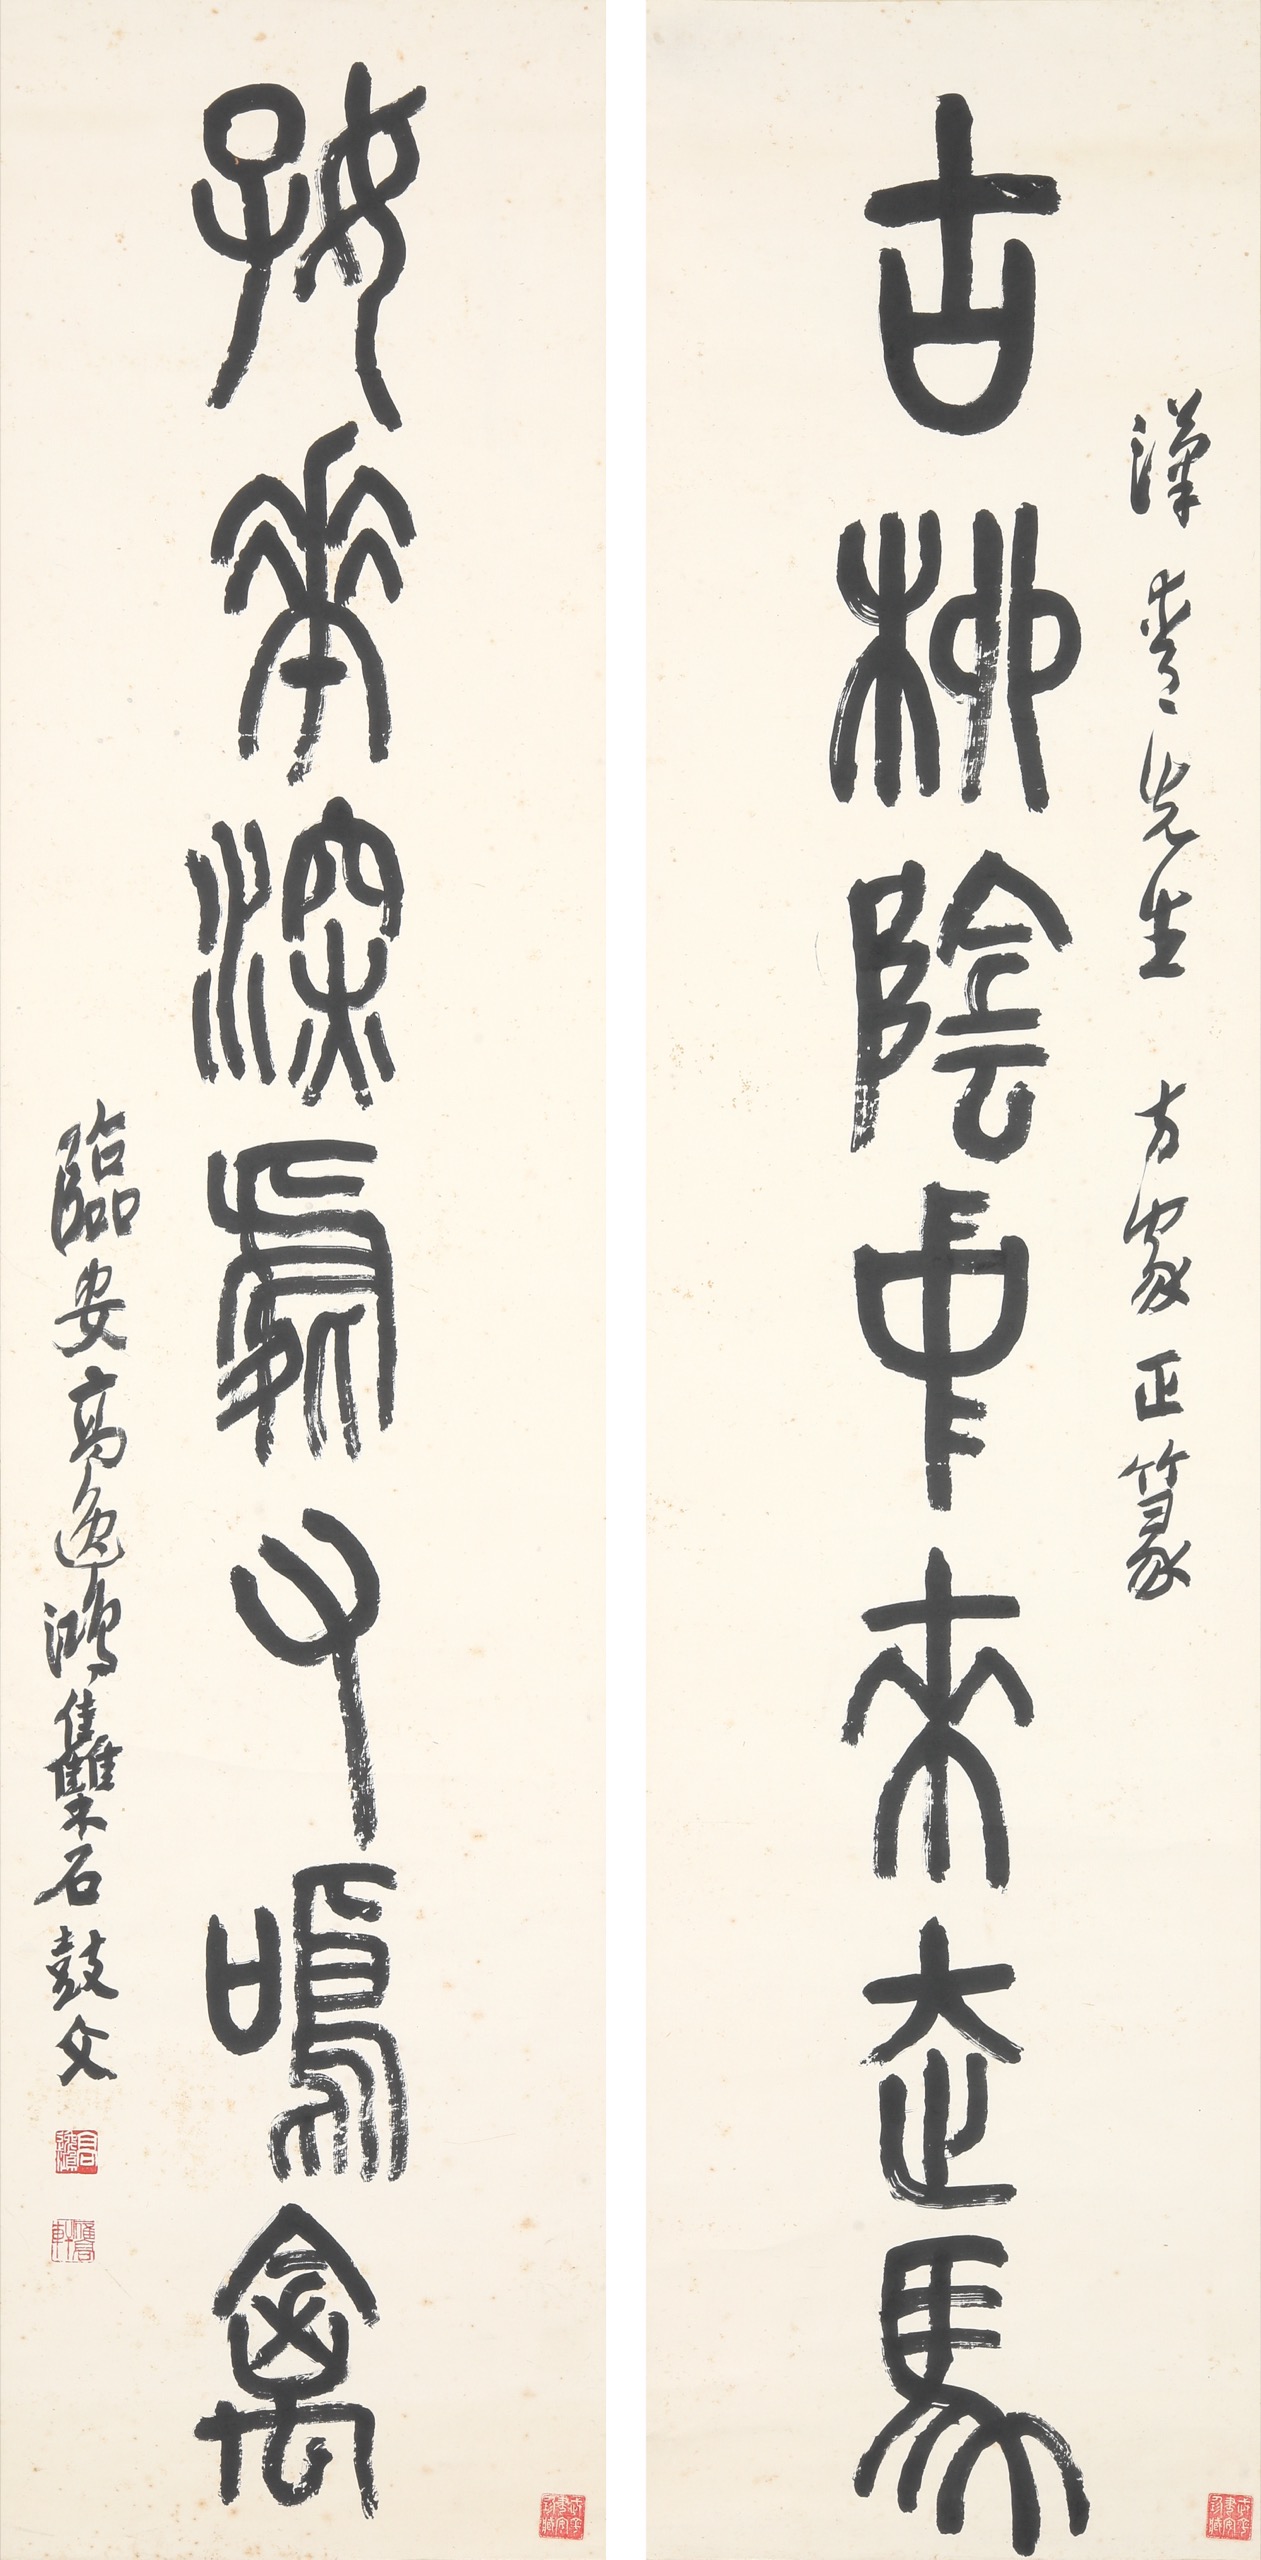 漢青先生方家正篆
古柳陰中來走馬
好華深處又鳴禽
臨安高逸鴻集石鼓文